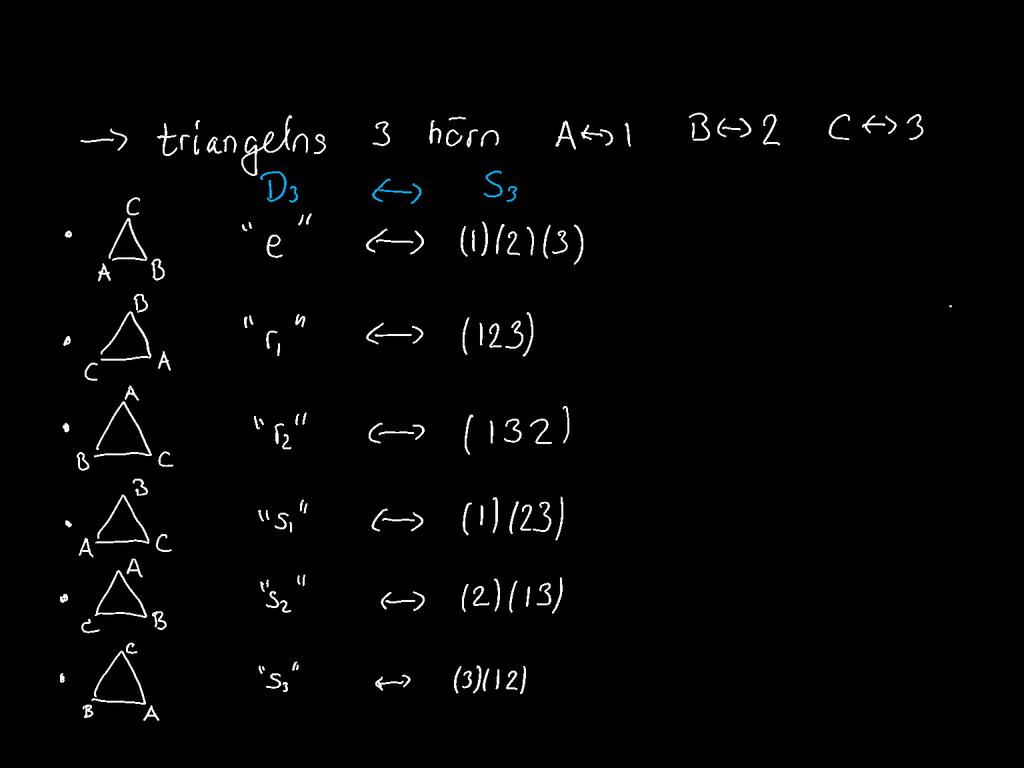 → triangelns 3 hörn A↔1 B↔2 C↔3
D₃ ↔ S₃
C
• A B "e" ↔ (1)(2)(3)
B
• C A "r₁" ↔ (123)
A
• B C "r₂" ↔ (132)
B
• A C "s₁" ↔ (1)(23)
A
• C B "s₂" ↔ (2)(13)
C
• B A "s₃" ↔ (3)(12)